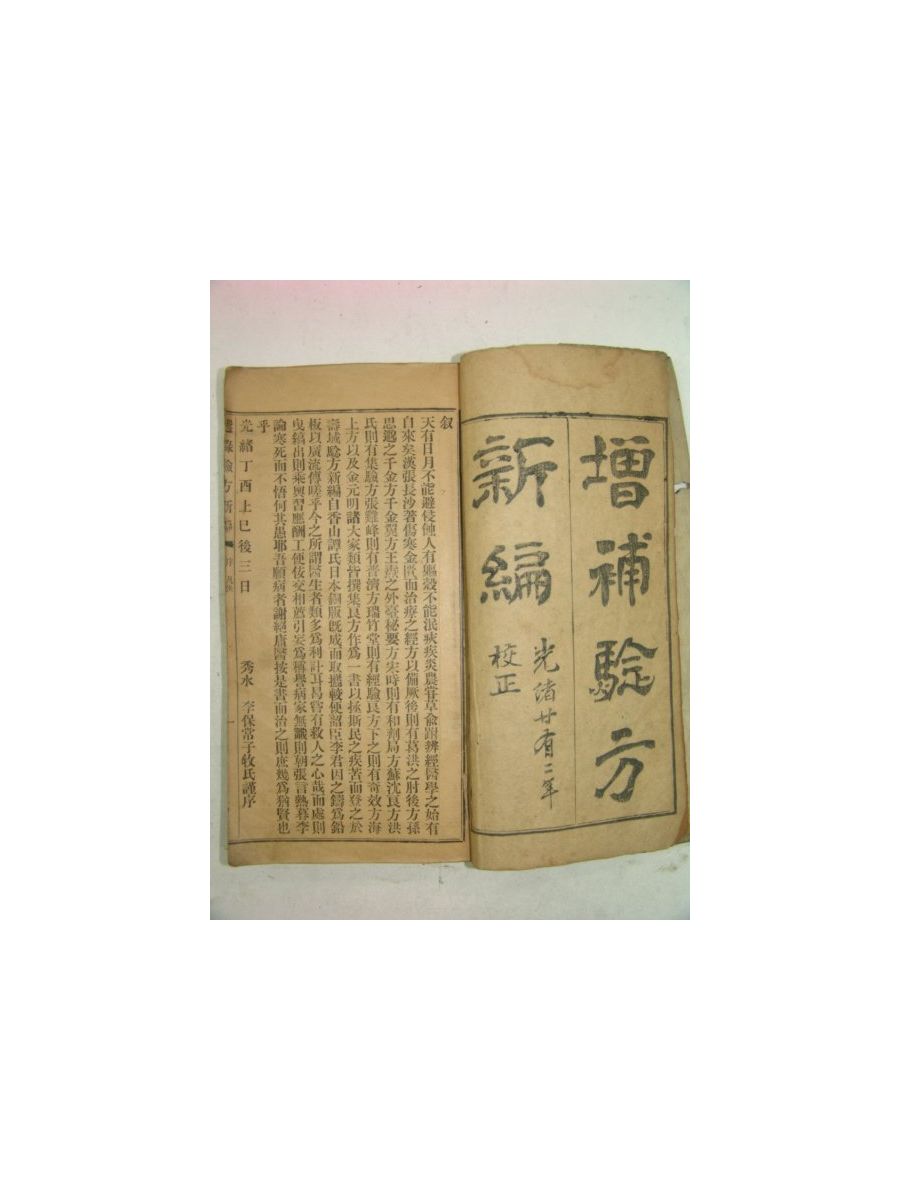 增補驗方
新編
光緒廿有二年
校正
叙
天有日月不能避侵蝕人有軀殼不能泯疢疾炎農甞草兪跗辨經醫學之始有
自來矣漢張長沙著傷寒金匱而治療之經方以備厥後則有葛洪之肘後方孫
思邈之千金方千金翼方王燾之外臺秘要方宋時則有和劑局方蘇沈良方洪
氏則有集驗方張難峰則有普濟方瑞竹堂則有經驗良方下之則有奇效方海
上方以及金元明諸大家類皆撰集良方作爲一書以拯斯民之疾苦而登之於
壽域驗方新編自香山譚氏日本銅版旣成而取攜較便詔臣李君因之鑄爲鉛
板以廣流傳嗟乎今之所謂醫生者類多爲利計耳曷甞有救人之心哉而處則
曳鎬出則乘輿習應酬工便佞交相薦引妄爲稱譽病家無識則朝張言熱暮李
論寒死而不悟何其愚耶吾願病者謝絕庸醫按是書而治之則庶幾爲猶賢也
乎
光緒丁酉上巳後三日
秀水 李保常子牧氏謹序
驗方新編